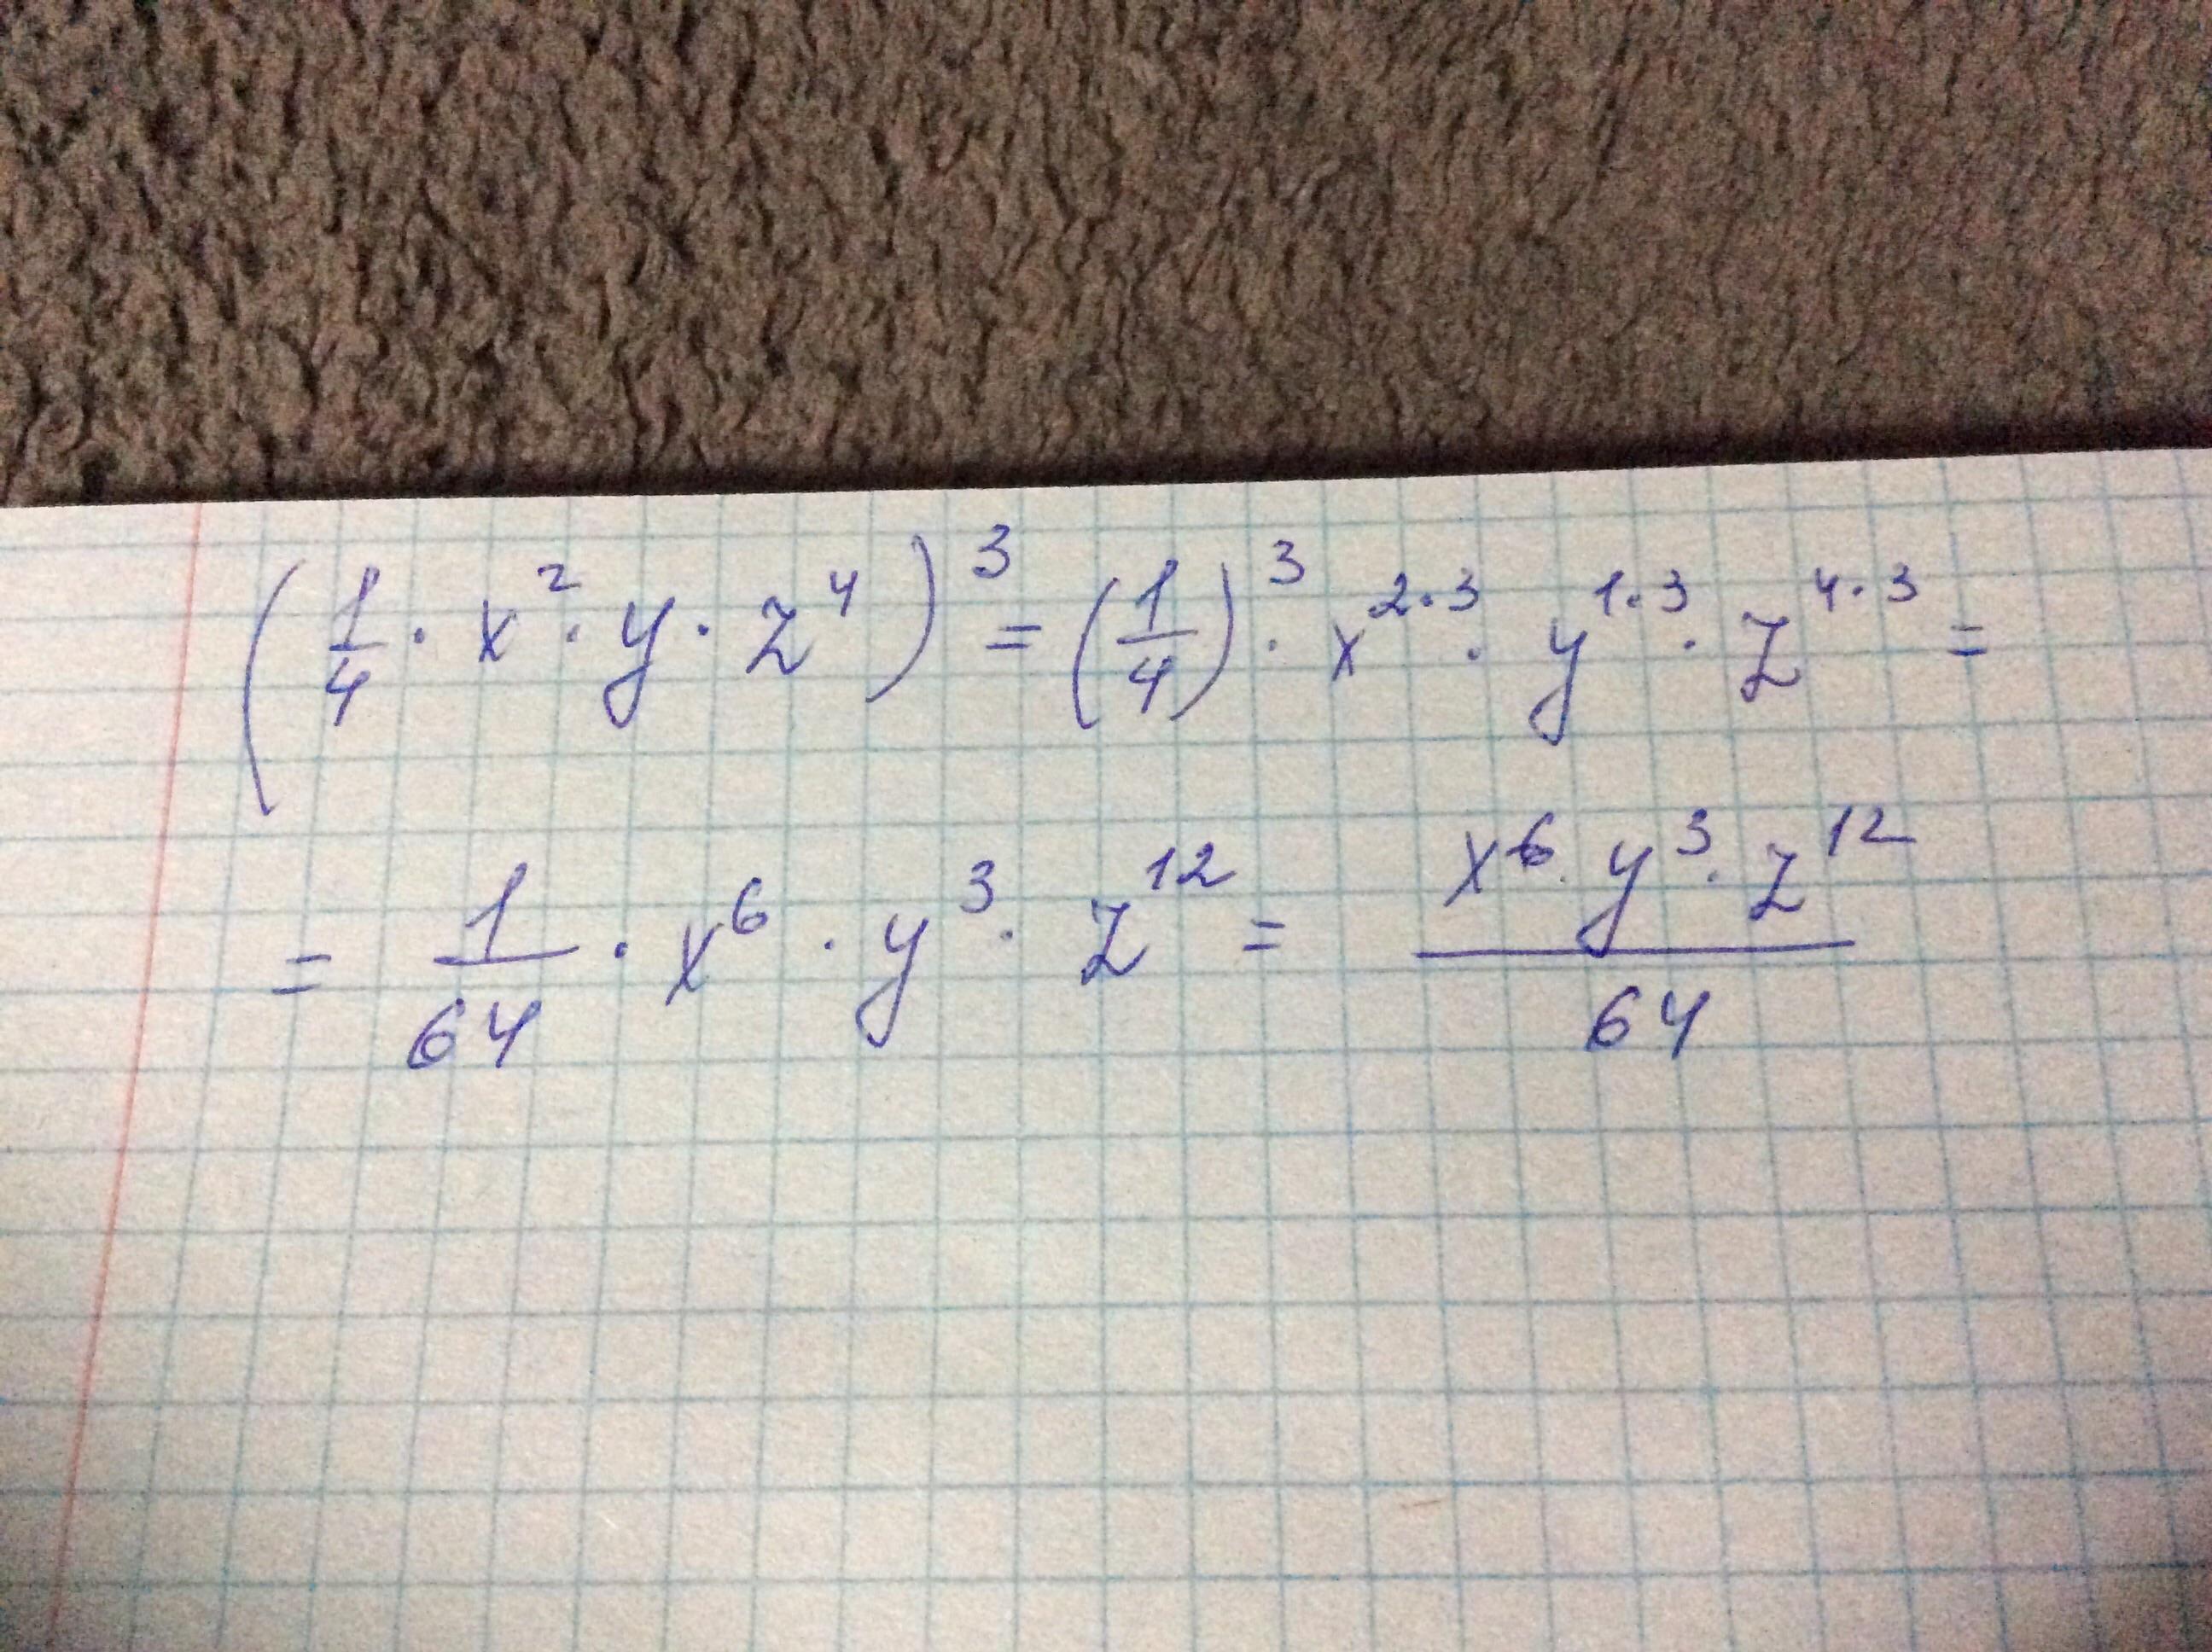 (1/4 · x² · y · z⁴)³ = (1/4)³ · x^(2·3) · y^(1·3) · z^(4·3) =
= 1/64 · x⁶ · y³ · z¹² = (x⁶ · y³ · z¹²)/64